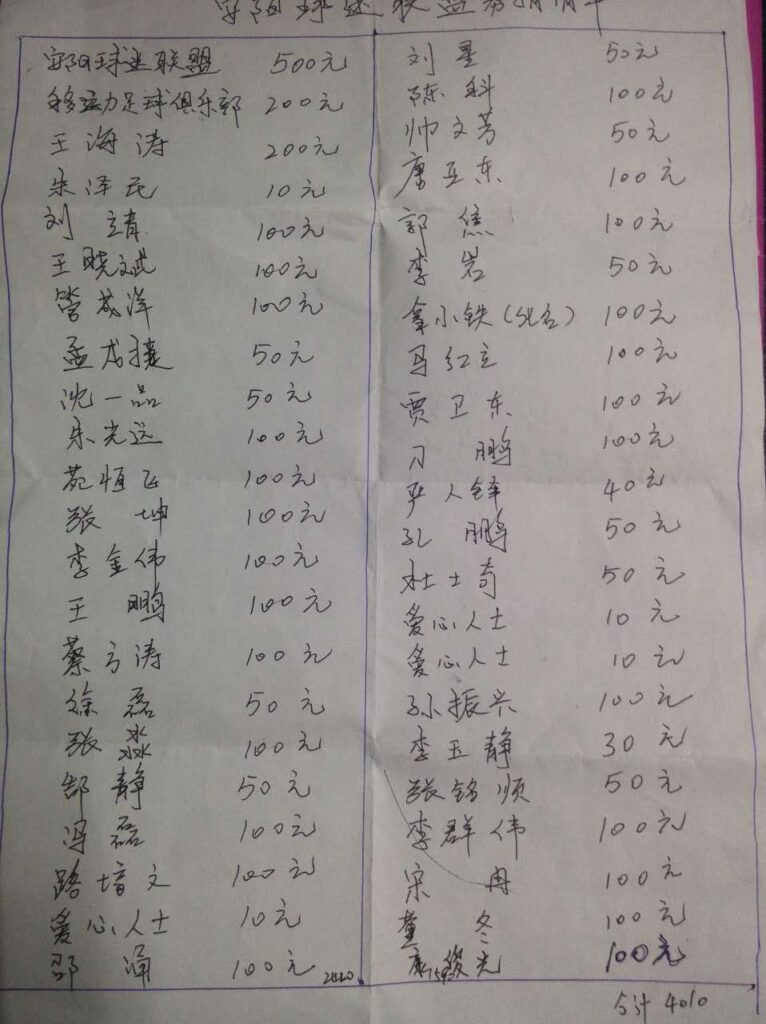 安阳球迷联盟捐
安阳球迷联盟 500元
移动力足球俱乐部 200元
王海涛 200元
朱泽民 10元
刘靖 100元
王晓斌 100元
管茂洋 100元
孟龙捷 50元
沈一品 50元
朱光远 100元
苑恒飞 100元
张坤 100元
李金伟 100元
王鹏 100元
蔡方涛 100元
徐磊 50元
张淼 100元
郜静 50元
冯磊 100元
路培文 100元
爱心人士 10元
邵涌 100元
2420
刘星 50元
陈科 100元
帅文芳 50元
唐亚东 100元
郭焦 100元
李岩 50元
拿小铁(化名) 100元
马红立 100元
贾卫东 100元
刁鹏 100元
尹人锋 40元
孔鹏 50元
杜士奇 50元
爱心人士 10元
爱心人士 10元
孙振兴 100元
李玉静 30元
张铭顺 50元
李群伟 100元
宋冉 100元
董冬 100元
俊光 100元
合计 4010